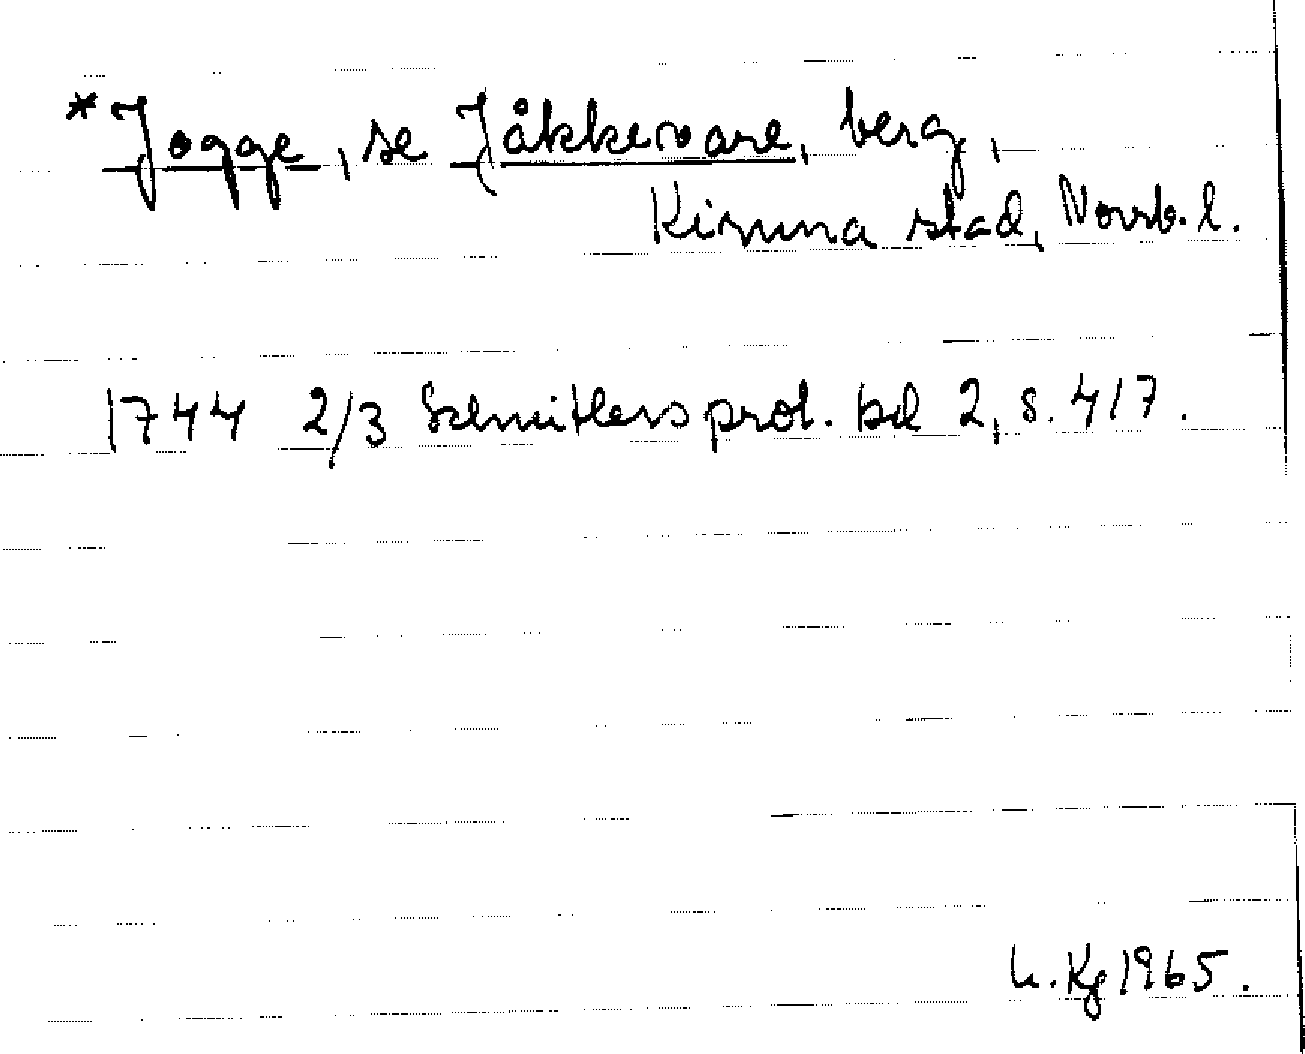 *Jogge, se Jåkkevare, berg,
Kiruna stad, Norrb. l.
1744 2/3 Schnitlers prot. bd 2, s. 417.
h. Kg 1965.